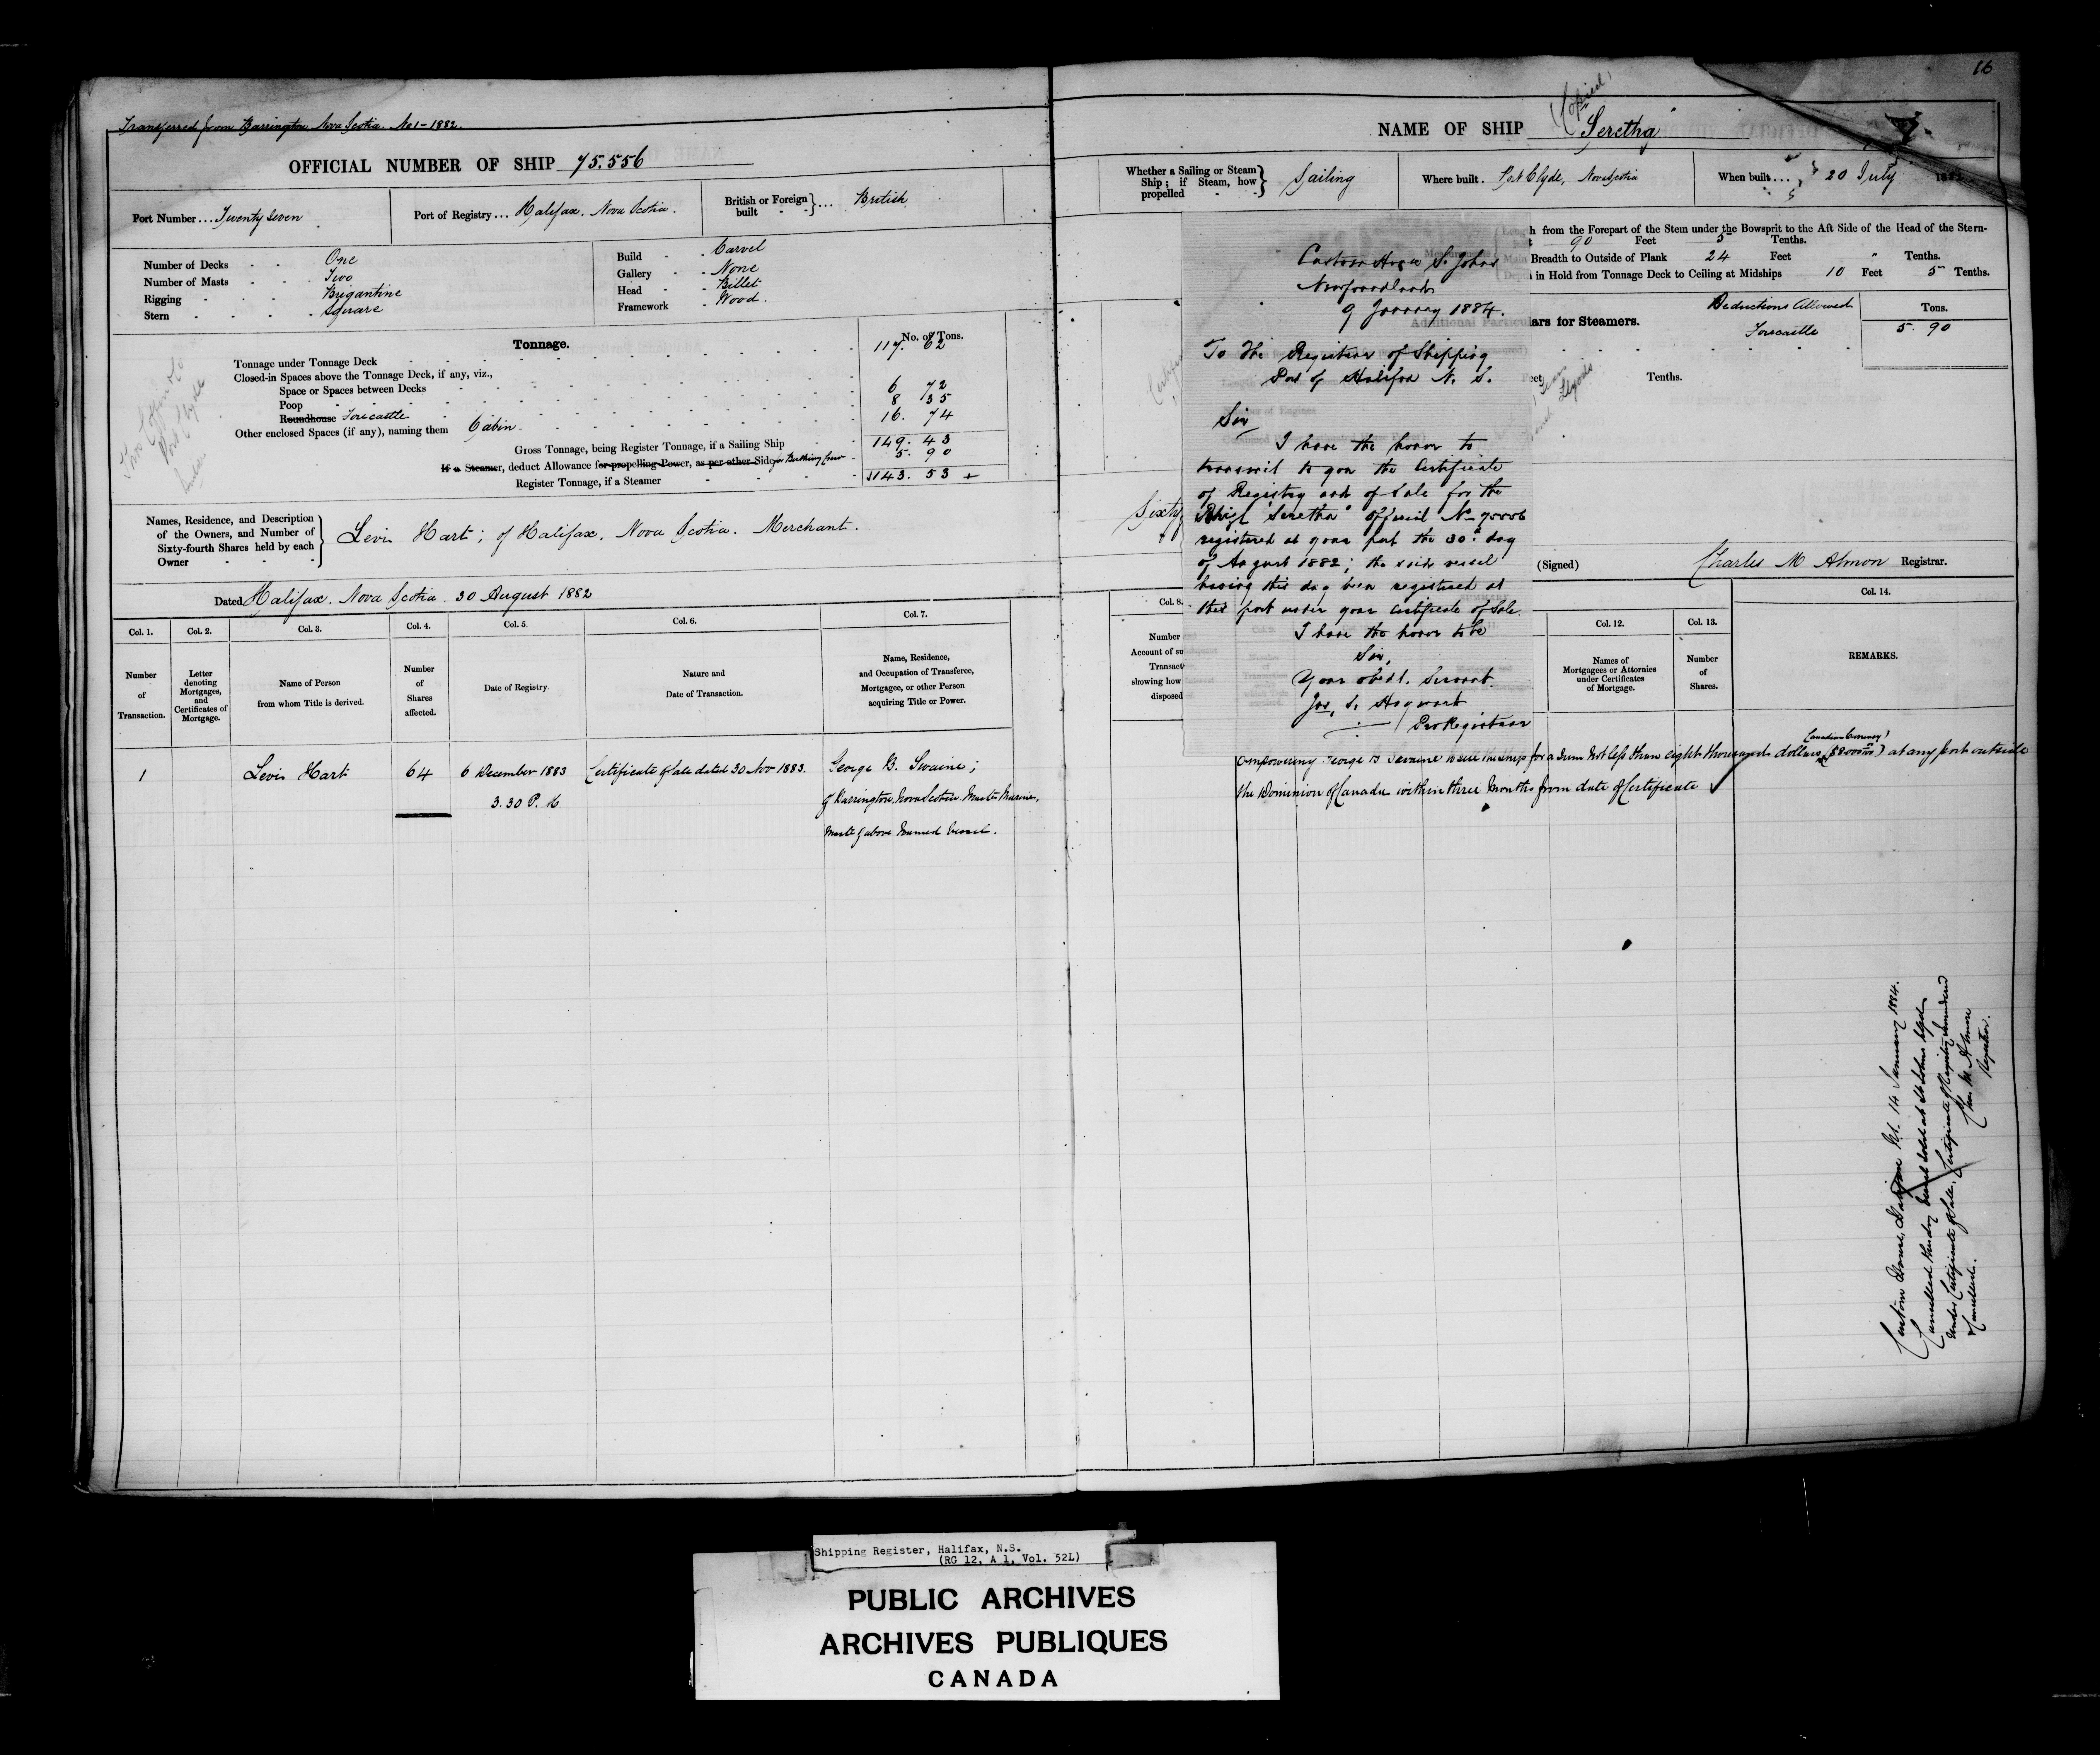 Transferred from Barrington Nova Scotia. No 1 - 1882.
OFFICIAL NUMBER OF SHIP 75.556
Port Number... Twenty Seven
Port of Registry... Halifax. Nova Scotia.
British or Foreign built } ... British
Number of Decks - - One
Number of Masts - - Two
Rigging - - - Brigantine
Stern - - - - Square
Build - - Carvel
Gallery - - None
Head - - Billet
Framework - Wood.
Tonnage.
No. of Tons.
Tonnage under Tonnage Deck 117. 62
Closed-in Spaces above the Tonnage Deck, if any, viz.,
Space or Spaces between Decks 6 72
Poop 8 35
Roundhouse Forecastle
Other enclosed Spaces (if any), naming them Cabin. 16. 74
Gross Tonnage, being Register Tonnage, if a Sailing Ship 149. 43
If a Steamer, deduct Allowance for propelling Power, as per other Side for Berthing Crew 5. 90
Register Tonnage, if a Steamer 143. 53 +
Names, Residence, and Description of the Owners, and Number of Sixty-fourth Shares held by each Owner
Levi Hart; of Halifax. Nova Scotia. Merchant.
Dated Halifax. Nova Scotia. 30 August 1882
Col. 1. Col. 2. Col. 3. Col. 4. Col. 5. Col. 6. Col. 7.
Number of Transaction.
Letter denoting Mortgages, and Certificates of Mortgage.
Name of Person from whom Title is derived.
Number of Shares affected.
Date of Registry.
Nature and Date of Transaction.
Name, Residence, and Occupation of Transferee, Mortgagee, or other Person acquiring Title or Power.
1 Levi Hart 64 6 December 1883 Certificate of Sale dated 30 Nov 1883. George B. Swaine;
3.30 P. M. of Barrington Nova Scotia Master Mariner,
Master of above Named Vessel.
16
Copied
NAME OF SHIP "Seretha"
Whether a Sailing or Steam Ship; if Steam, how propelled } Sailing
Where built. Port Clyde, Nova Scotia
When built.... 20 July 188
h from the Forepart of the Stem under the Bowsprit to the Aft Side of the Head of the Stern-
90 Feet 5 Tenths.
Breadth to Outside of Plank 24 Feet " Tenths.
in Hold from Tonnage Deck to Ceiling at Midships 10 Feet 5 Tenths.
ars for Steamers.
Deductions Allowed
Tons.
Forecastle 5. 90
Tenths.
Custom House St. Johns
Newfoundland
9 January 1884.
To The Registrar of Shipping
Port of Halifax N. S.
Sir
I have the honor to
transmit to you the Certificate
of Registry and of Sale for the
Brigt "Seretha" Official No
registered at your port the 30th day
of August 1882; the said vessel
having this day been registered at
this port under your certificate of Sale.
I have the honor to be
Sir,
Your obedt. Servant.
Jas. S. Hayward
Pro Registrar
Sixty
(Signed) Charles M Almon Registrar.
Col. 8. Col. 12. Col. 13. Col. 14.
Number
Account of su
Transact
showing how
disposed
Names of Mortgagees or Attornies under Certificates of Mortgage.
Number of Shares.
REMARKS.
(Canadian Currency)
Empowering George B Swaine to sell the ship for a sum not less than eight thousand dollars ($8000) at any port outside
the Dominion of Canada within three months from date of Certificate
Custom House, Halifax NS. 14 January 1884.
Cancelled this day Vessel sold at St Johns Nfld
under Certificate of Sale, Certificate of Registry surrendered
& cancelled.
Chas M Almon
Registrar.
Shipping Register, Halifax, N.S.
(RG 12, A 1, Vol. 52L)
PUBLIC ARCHIVES
ARCHIVES PUBLIQUES
CANADA